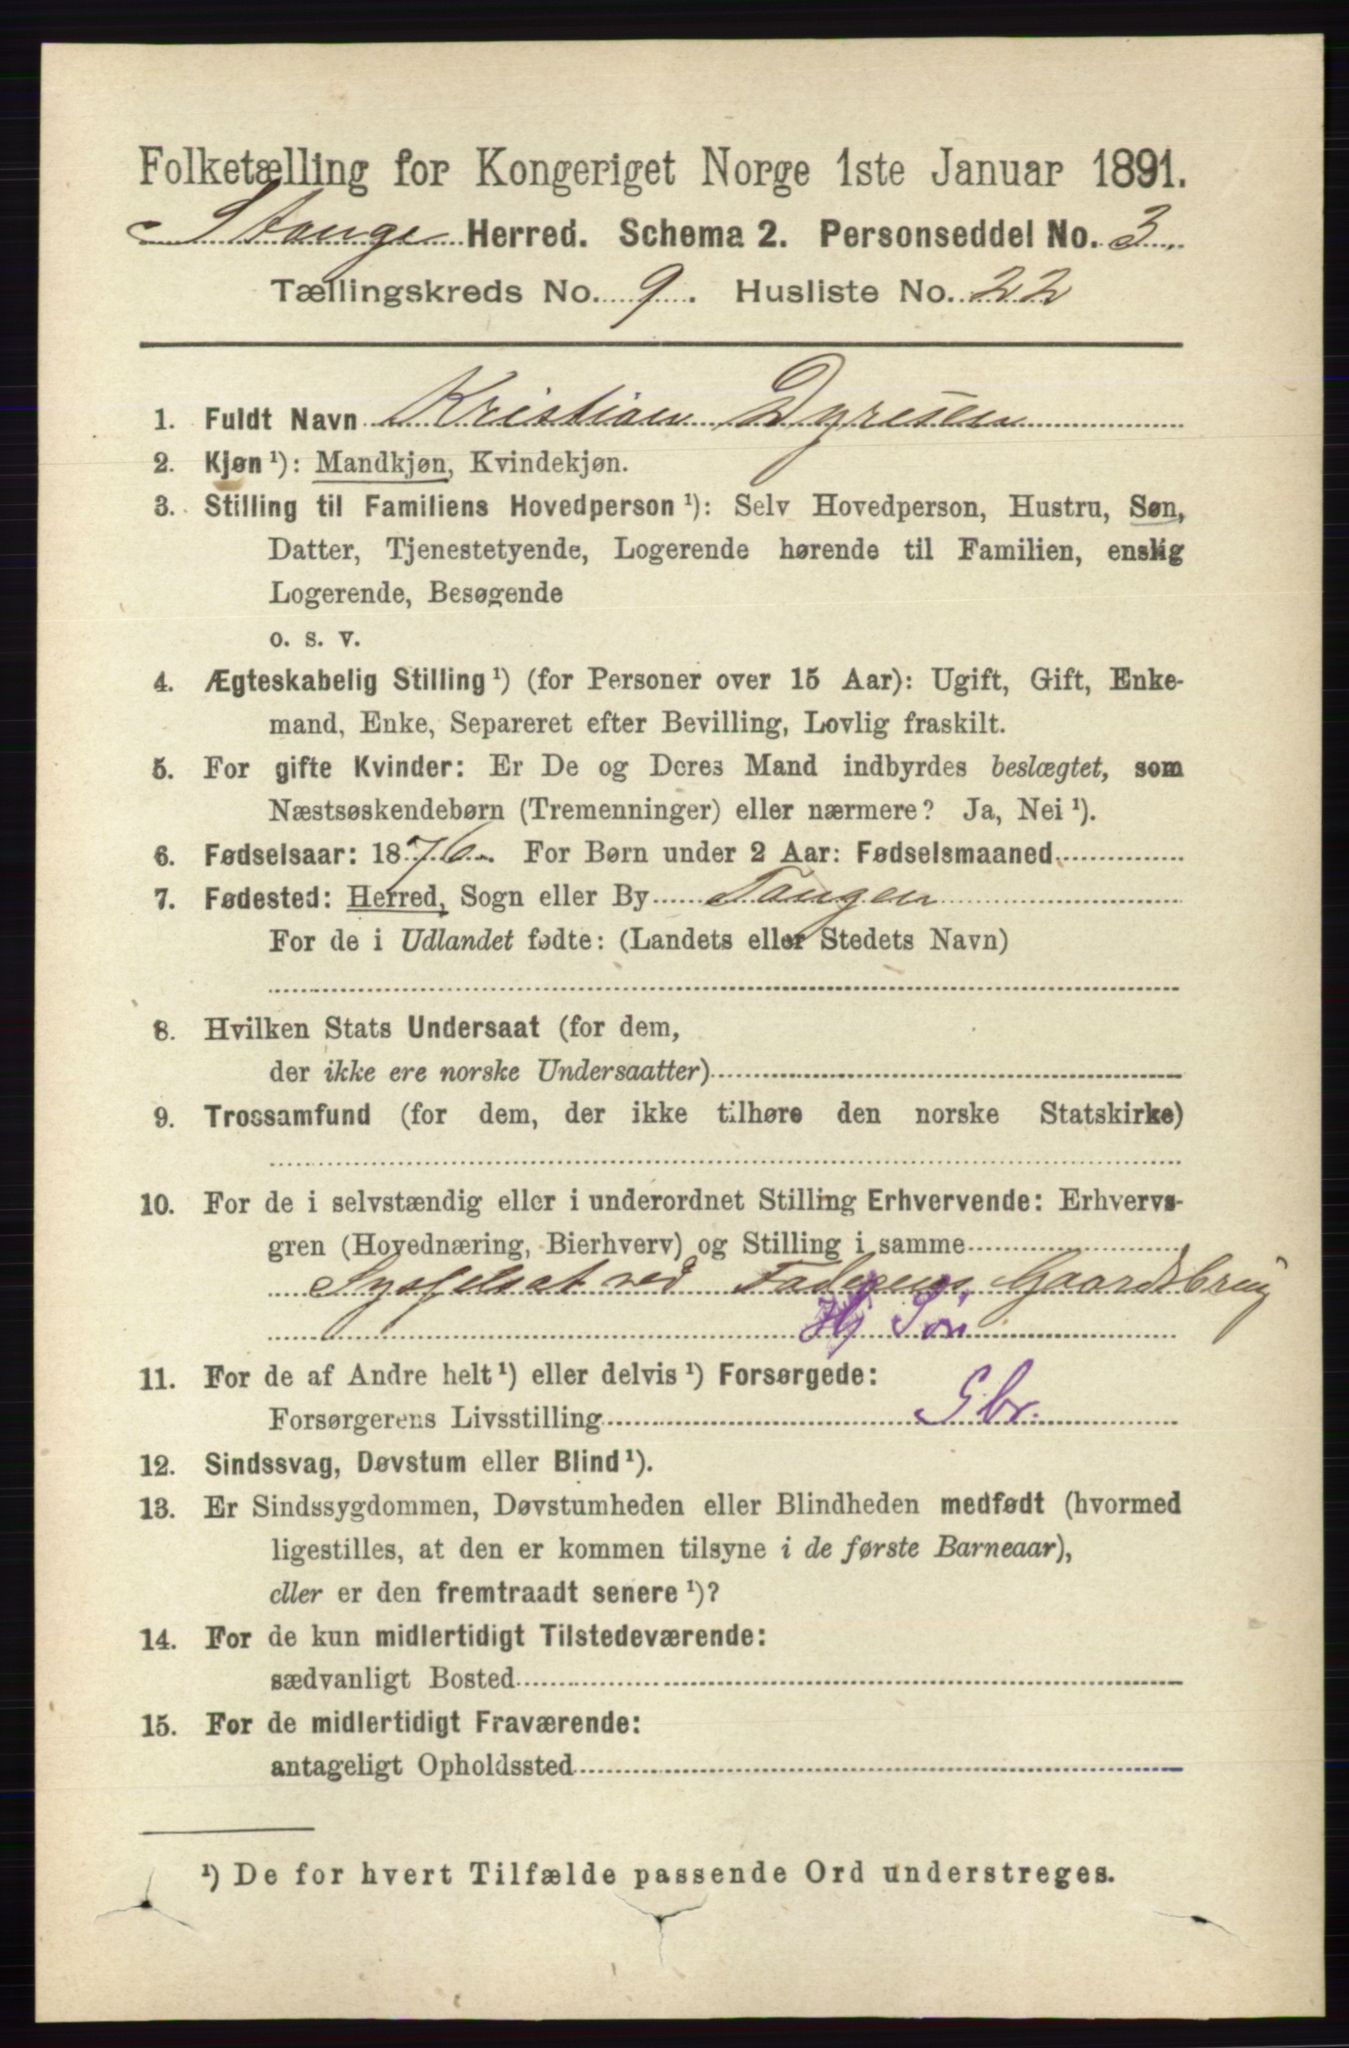 Folketælling for Kongeriget Norge 1ste Januar 1891.
Stange Herred. Schema 2. Personseddel No. 3.
Tællingskreds No. 9. Husliste No. 22
1. Fuldt Navn Kristian Dyresen
2. Kjøn ¹): Mandkjøn, Kvindekjøn.
3. Stilling til Familiens Hovedperson ¹): Selv Hovedperson, Hustru, Søn,
Datter, Tjenestetyende, Logerende hørende til Familien, enslig
Logerende, Besøgende
o. s. v.
4. Ægteskabelig Stilling ¹) (for Personer over 15 Aar): Ugift, Gift, Enke-
mand, Enke, Separeret efter Bevilling, Lovlig fraskilt.
5. For gifte Kvinder: Er De og Deres Mand indbyrdes beslægtet, som
Næstsøskendebørn (Tremenninger) eller nærmere? Ja, Nei ¹).
6. Fødselsaar: 1876. For Børn under 2 Aar: Fødselsmaaned
7. Fødested: Herred, Sogn eller By Tangen
For de i Udlandet fødte: (Landets eller Stedets Navn)
8. Hvilken Stats Undersaat (for dem,
der ikke ere norske Undersaatter)
9. Trossamfund (for dem, der ikke tilhøre den norske Statskirke)
10. For de i selvstændig eller i underordnet Stilling Erhvervende: Erhvervs-
gren (Hovednæring, Bierhverv) og Stilling i samme
Sysselsat ved Faderens Gaardsbrug
Hj Søn
11. For de af Andre helt ¹) eller delvis ¹) Forsørgede:
Forsørgerens Livsstilling Gbr.
12. Sindssvag, Døvstum eller Blind ¹).
13. Er Sindssygdommen, Døvstumheden eller Blindheden medfødt (hvormed
ligestilles, at den er kommen tilsyne i de første Barneaar),
eller er den fremtraadt senere ¹)?
14. For de kun midlertidigt Tilstedeværende:
sædvanligt Bosted
15. For de midlertidigt Fraværende:
antageligt Opholdssted
¹) De for hvert Tilfælde passende Ord understreges.